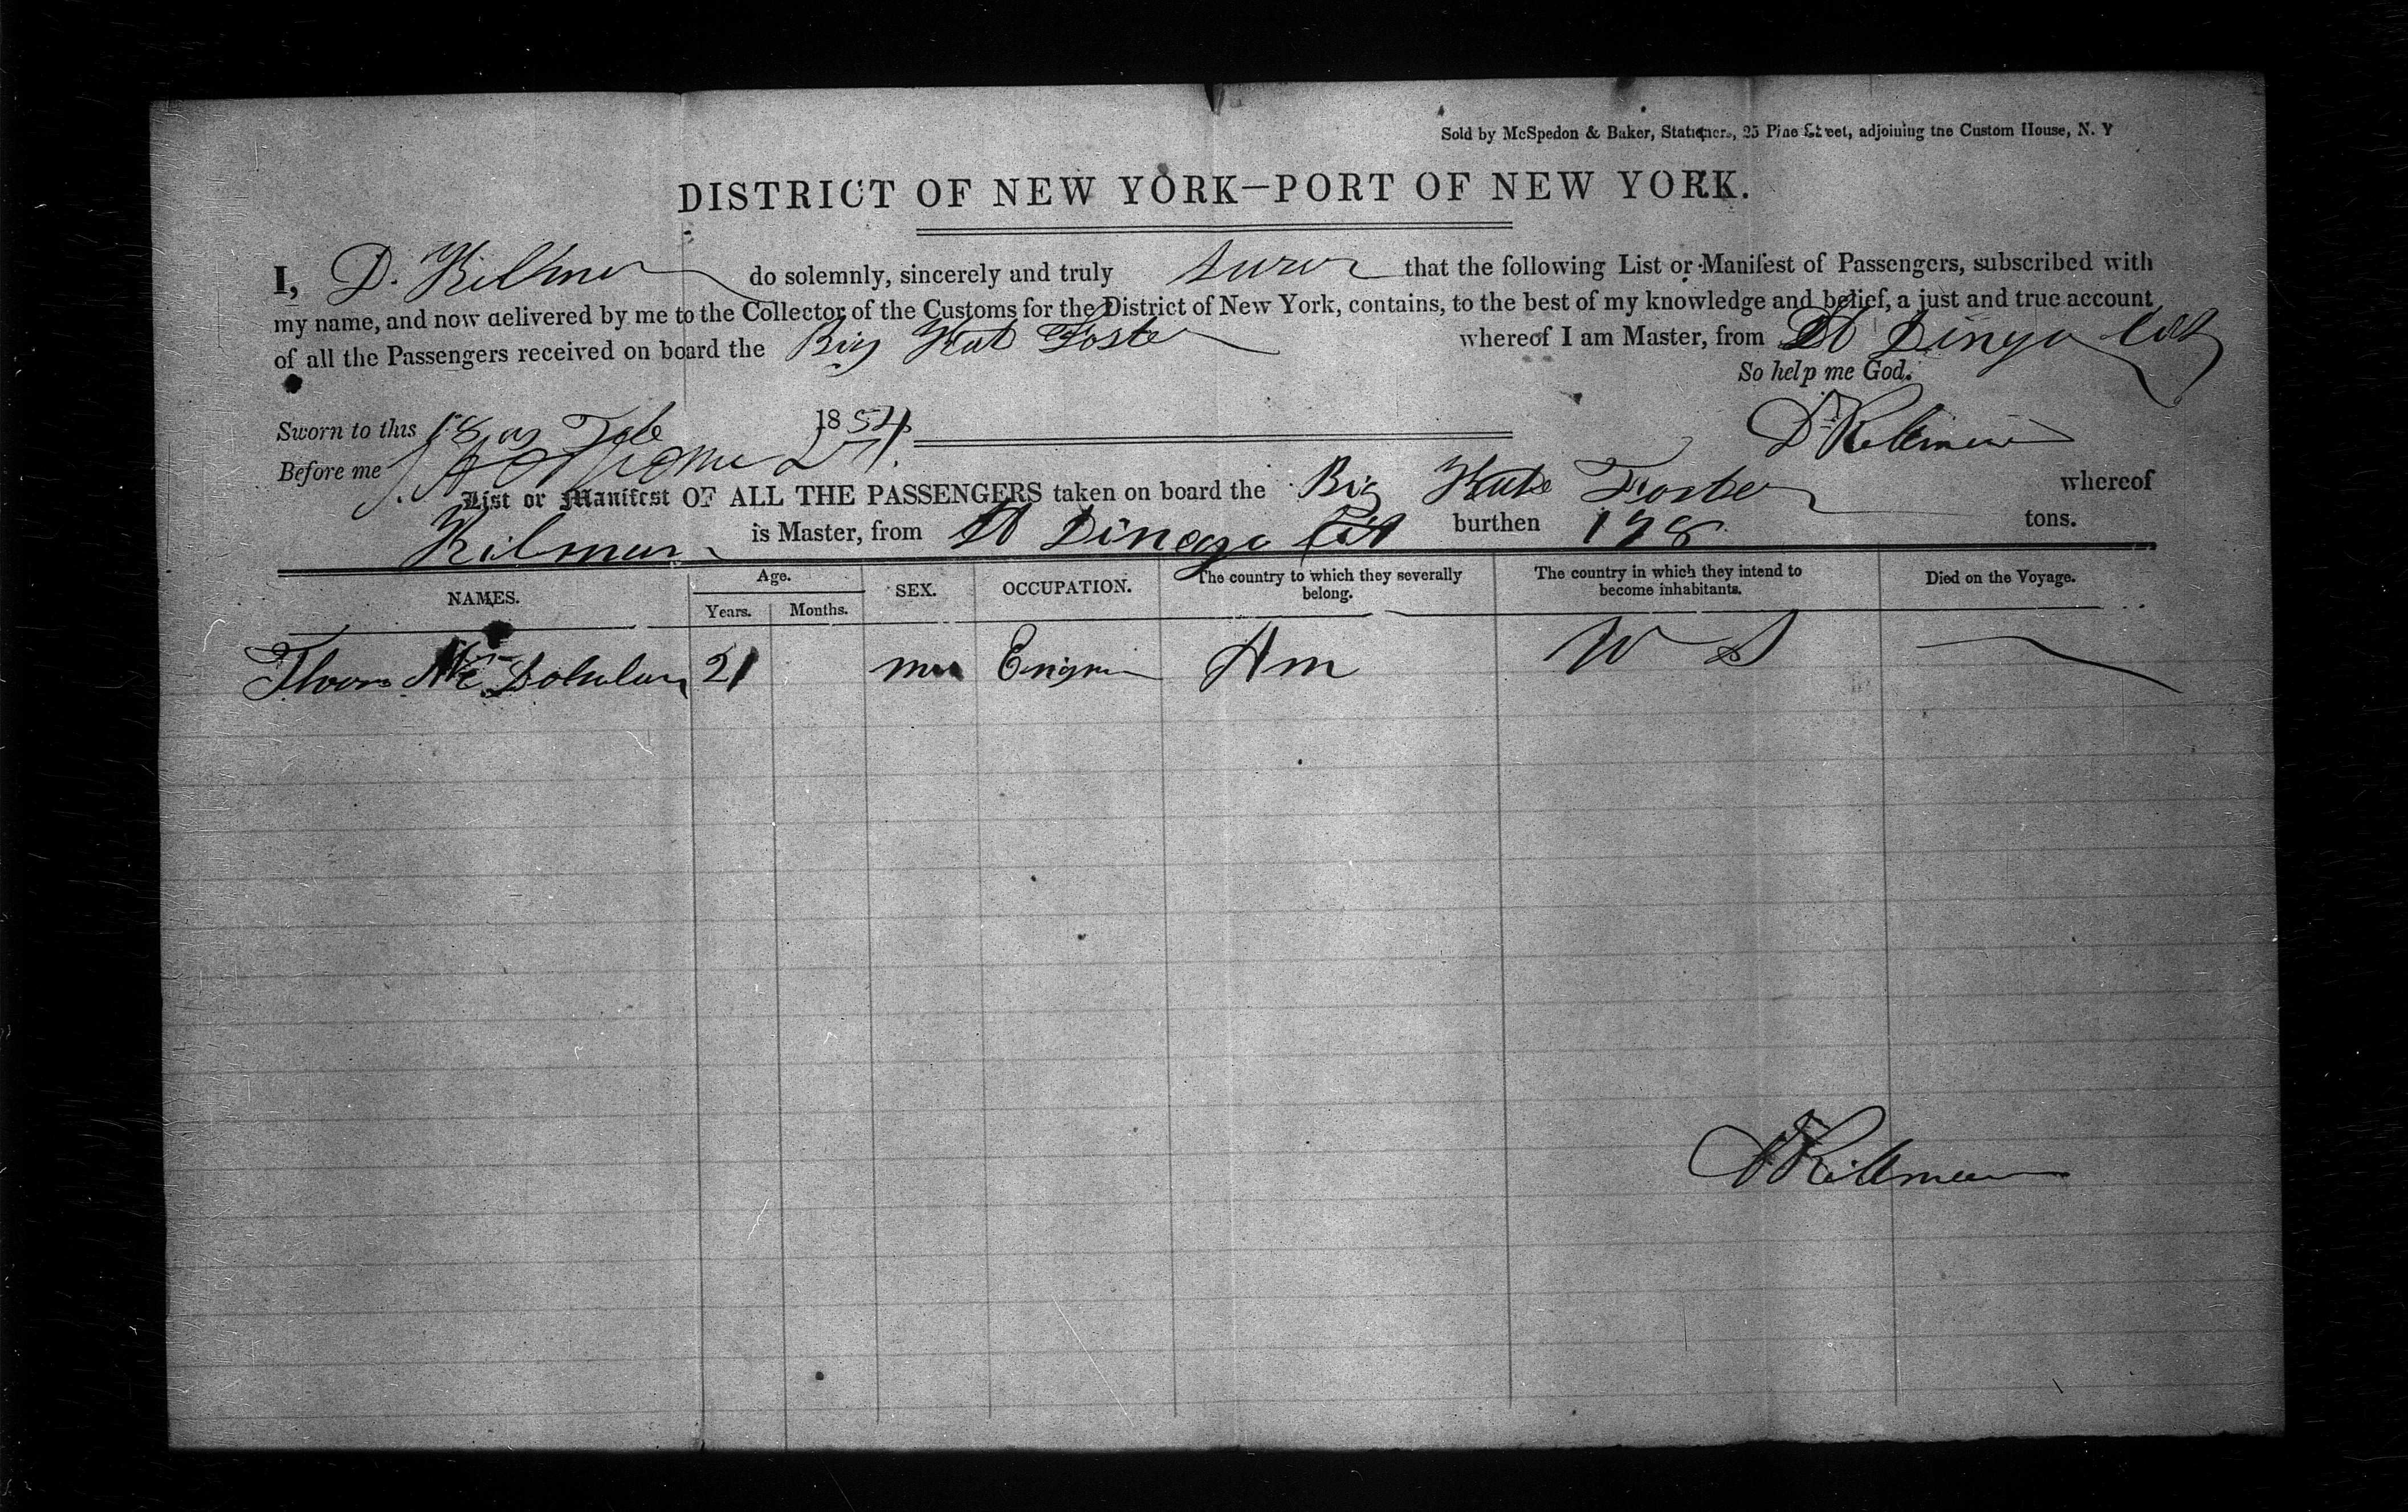 Sold by McSpedon & Baker, Stationers, 25 Pine Street, adjoining the Custom House, N. Y
DISTRICT OF NEW YORK—PORT OF NEW YORK.
I, D. Kilmer do solemnly, sincerely and truly swear that the following List or Manifest of Passengers, subscribed with
my name, and now delivered by me to the Collector of the Customs for the District of New York, contains, to the best of my knowledge and belief, a just and true account
of all the Passengers received on board the Brig Kate Foster whereof I am Master, from St Dingo
So help me God.
Sworn to this 18 1854 D Killman
Before me
List or Manifest OF ALL THE PASSENGERS taken on board the Brig Kate Foster whereof
Kilman is Master, from St Dinego burthen 198 tons.
NAMES. Age. Years. Months. SEX. OCCUPATION. The country to which they severally belong. The country in which they intend to become inhabitants. Died on the Voyage.
Thoms Mc 21 Am
D Killman